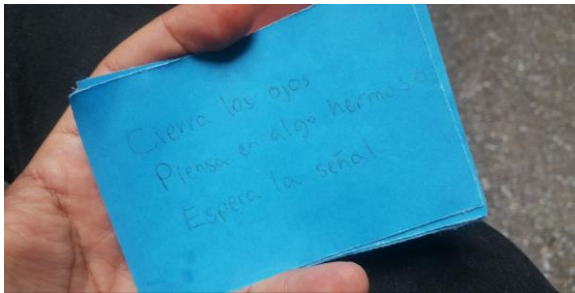 Cierra los ojos
Piensa en algo hermoso
Espera la señal